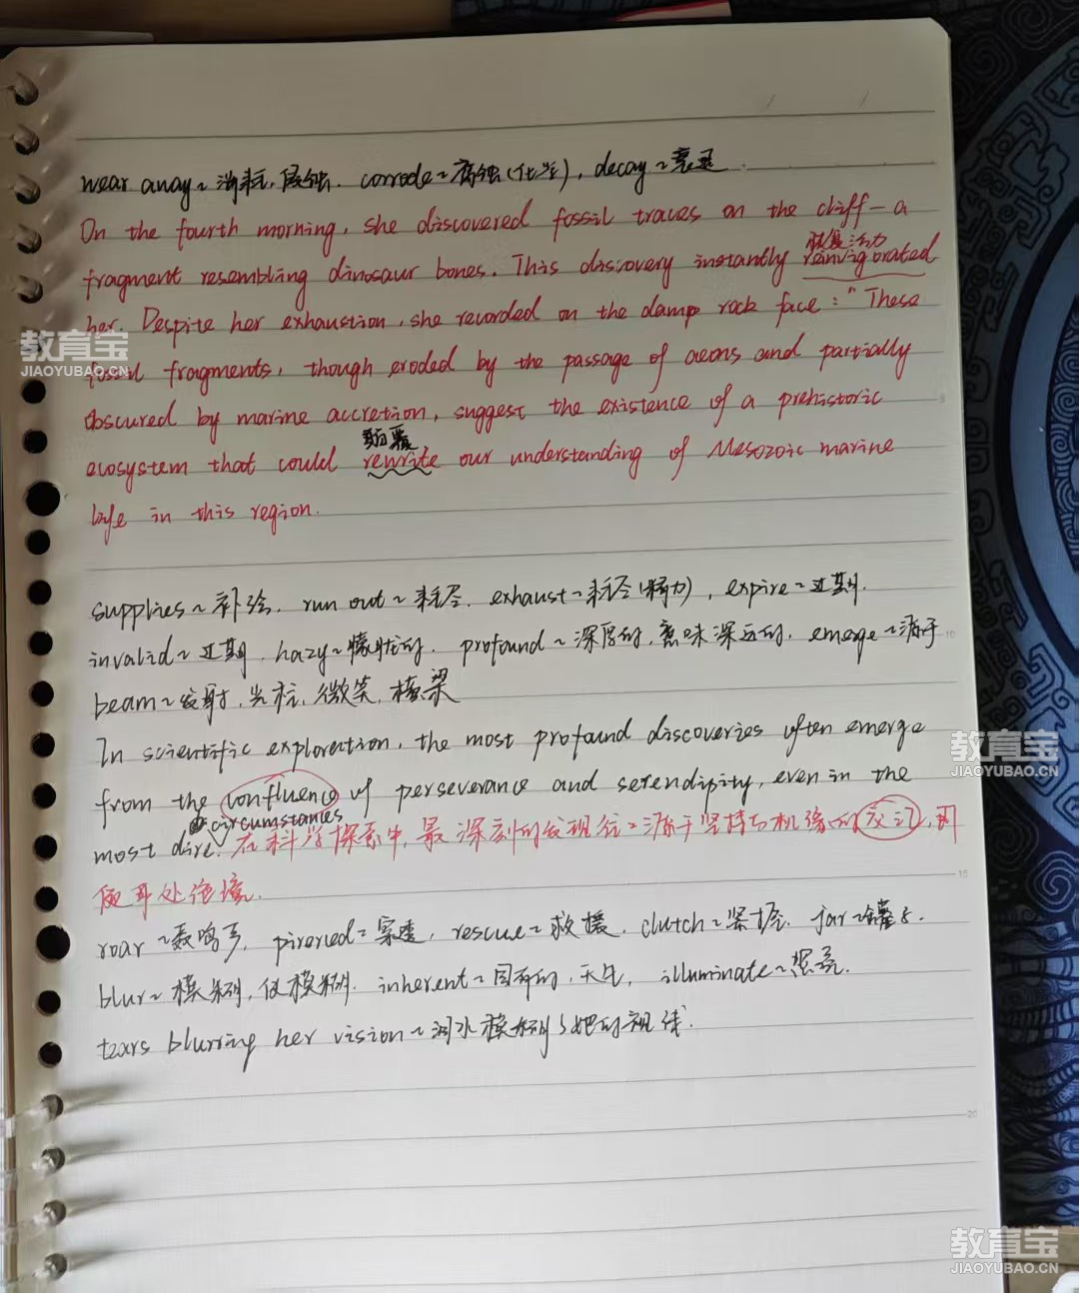 wear away~消耗,侵蚀. corrode~腐蚀(化学), decay~衰退.
On the fourth morning, she discovered fossil traces on the cliff—a
恢复活力
fragment resembling dinosaur bones. This discovery instantly reinvigorated
her. Despite her exhaustion, she recorded on the damp rock face: "These
fossil fragments, though eroded by the passage of aeons and partially
obscured by marine accretion, suggest the existence of a prehistoric
颠覆
ecosystem that could rewrite our understanding of Mesozoic marine
life in this region.
supplies~补给, run out~耗尽. exhaust~耗尽(精力), expire~过期.
invalid~过期, hazy~朦胧的. profound~深层的,意味深远的. emerge~源于
beam~发射,光柱,微笑,横梁
In scientific exploration, the most profound discoveries often emerge
from the confluence of perseverance and serendipity, even in the
circumstances
most dire. 在科学探索中,最深刻的发现往往源于坚持与机缘的交汇,即
便身处绝境.
roar~轰鸣声, rescue~救援. clutch~紧握. jar~罐子.
blur~模糊,使模糊. inherent~固有的,天生, illuminate~照亮.
tears blurring her vision~泪水模糊了她的视线.
教育宝
JIAOYUBAO.CN
教育宝
JIAOYUBAO.CN
教育宝
JIAOYUBAO.CN